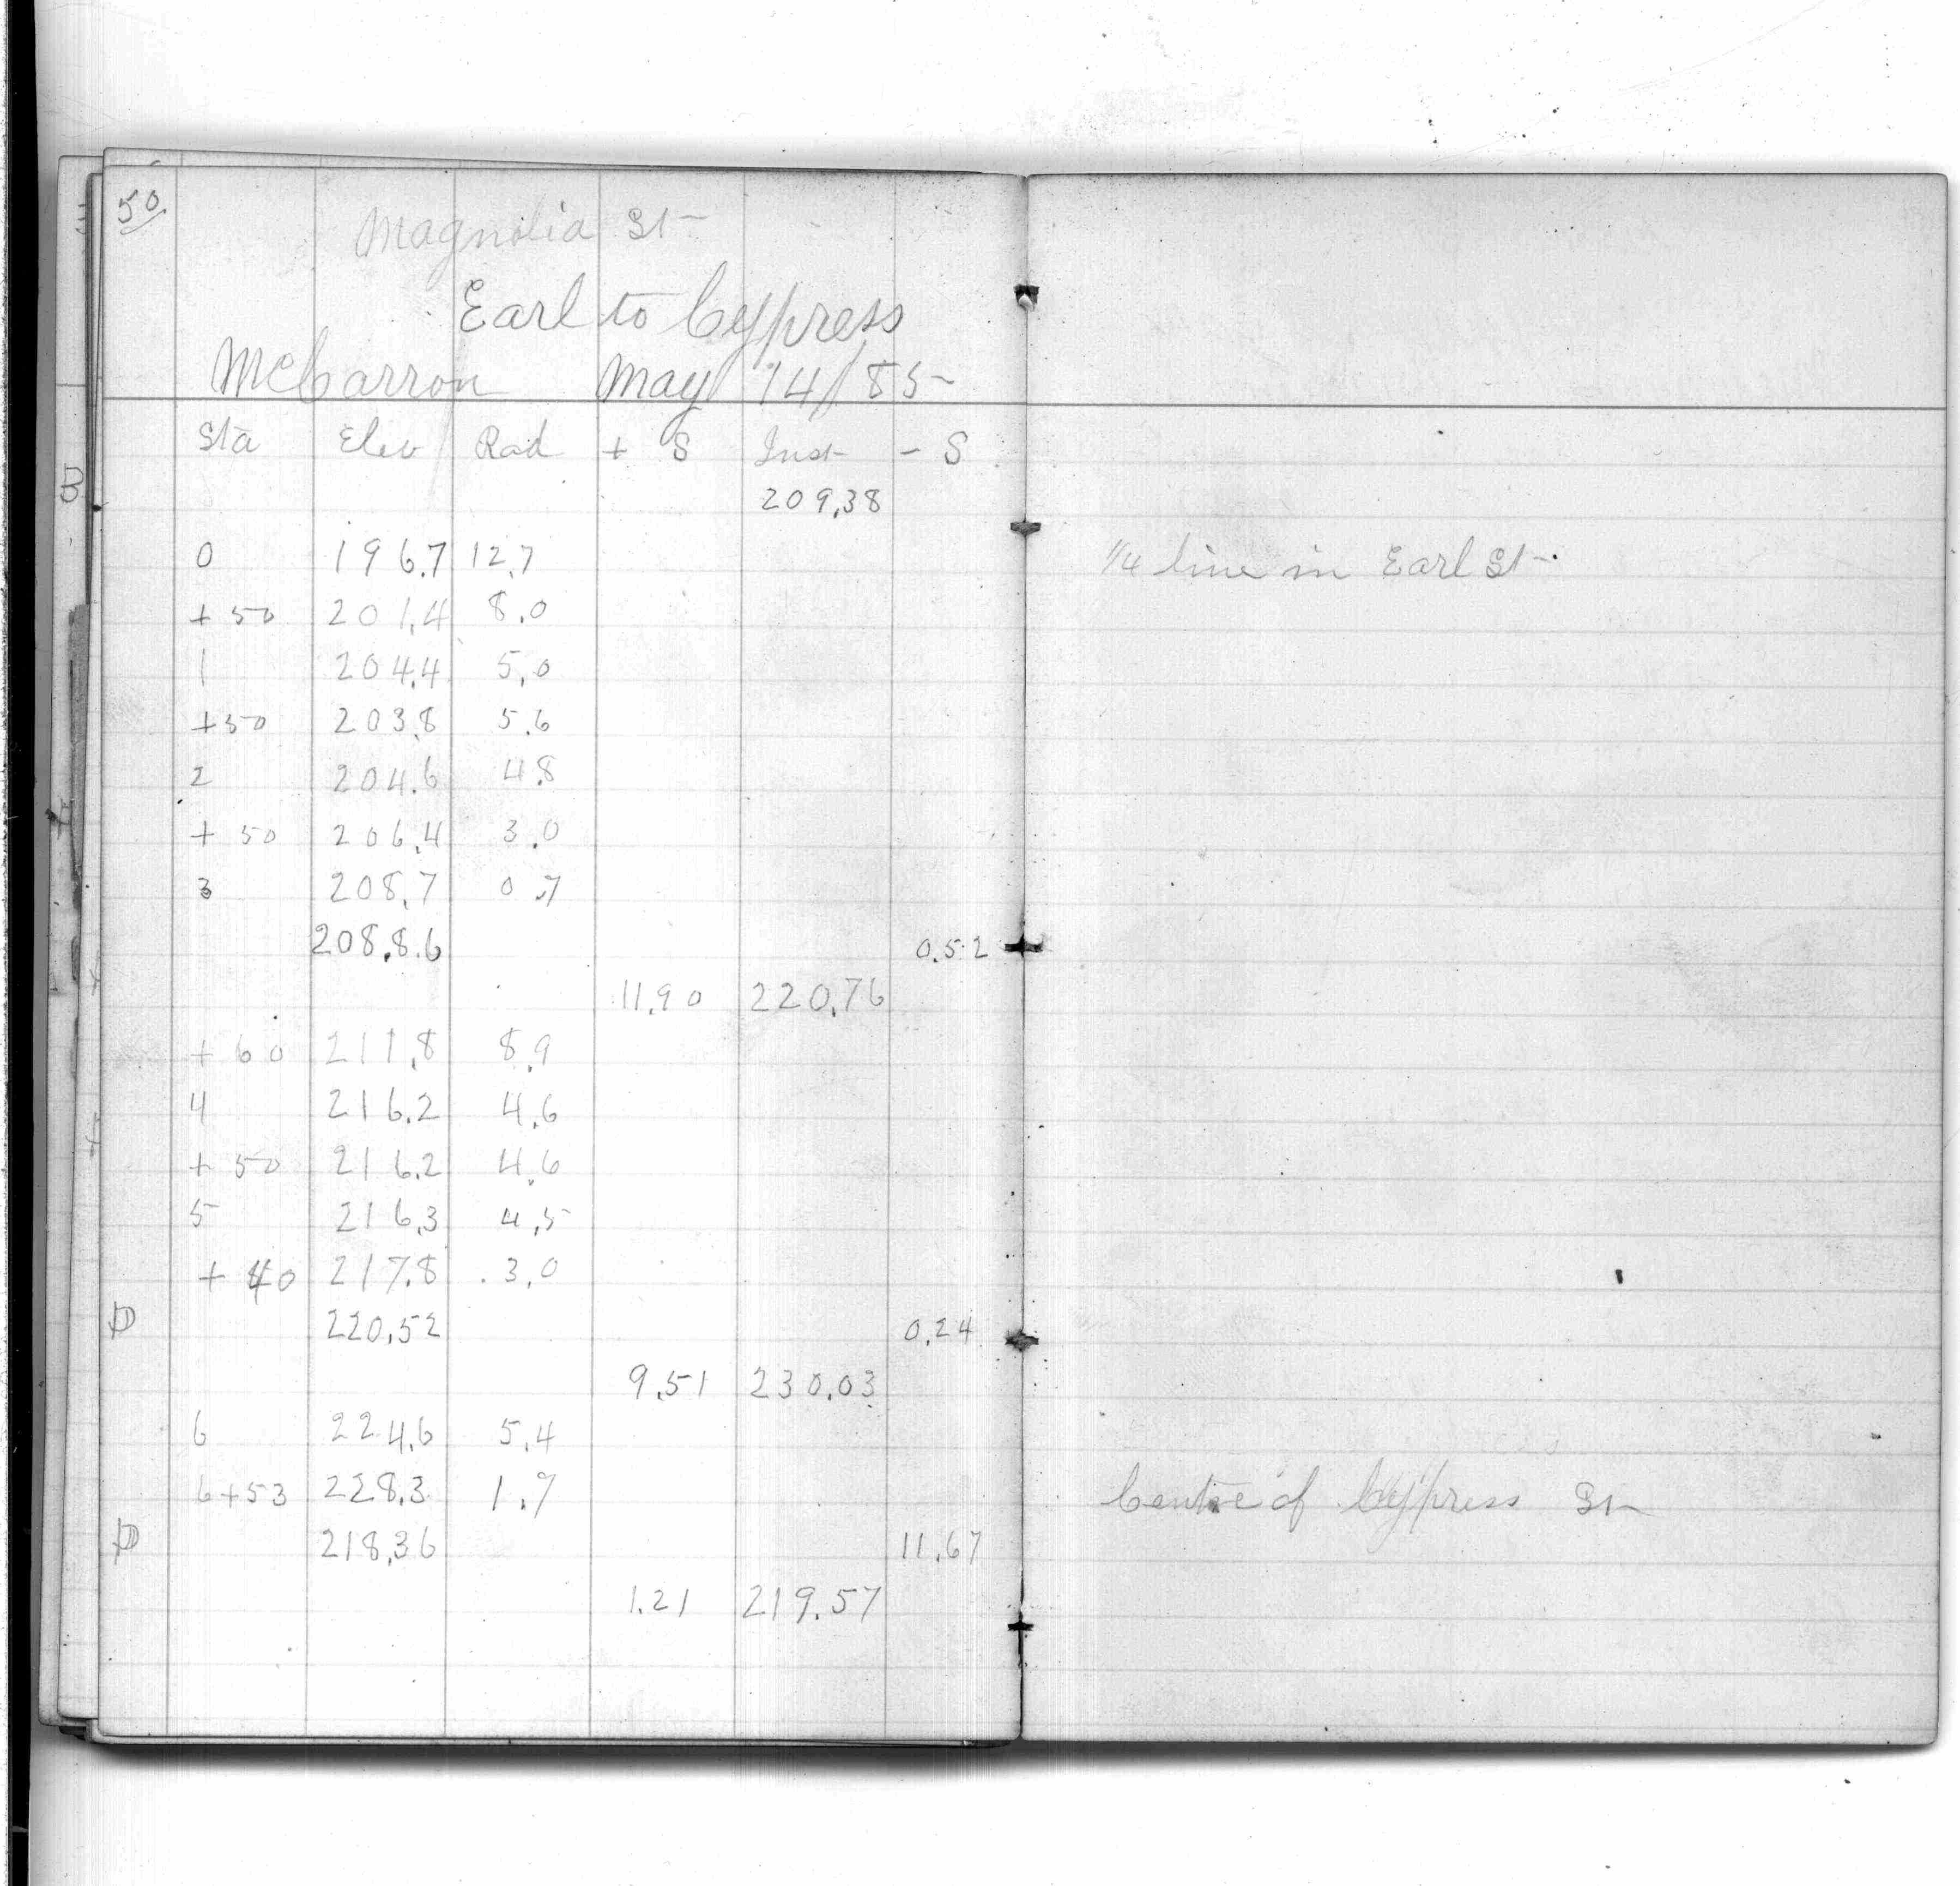 50.
Magnolia St
Earl to Cypress
McCarron May 14/85
Sta Elev Rad + S Inst - S
209.38
0 196.7 12.7 1/4 line in Earl St
+50 201.4 8.0
1 204.4 5.0
+50 203.8 5.6
2 204.6 4.8
+50 206.4 3.0
3 208.7 0.7
208.8.6 0.52
11.90 220.76
+60 211.8 8.9
4 216.2 4.6
+50 216.2 4.6
5 216.3 4.5
+40 217.8 3.0
220.52 0.24
9.51 230.03
6 224.6 5.4
6+53 228.3 1.7 Centre of Cypress St
218.36 11.67
1.21 219.57